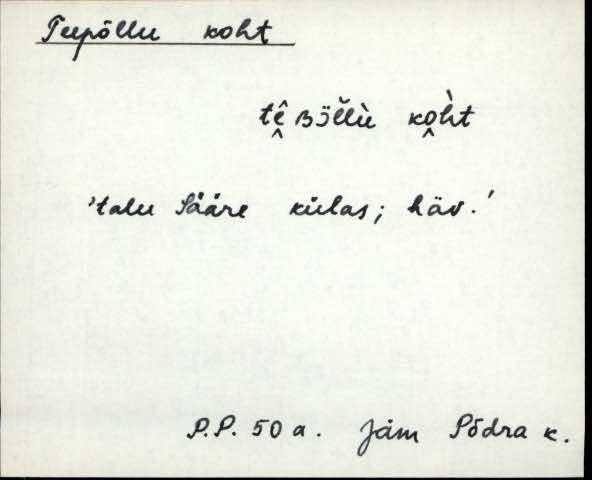 Teepõllu koht
tḙ̂ʙɔ̈ĺ̆lù ko̭h̀t
'talu Sääre külas; häv.'
P.P. 50 a. Jäm Põdra k.